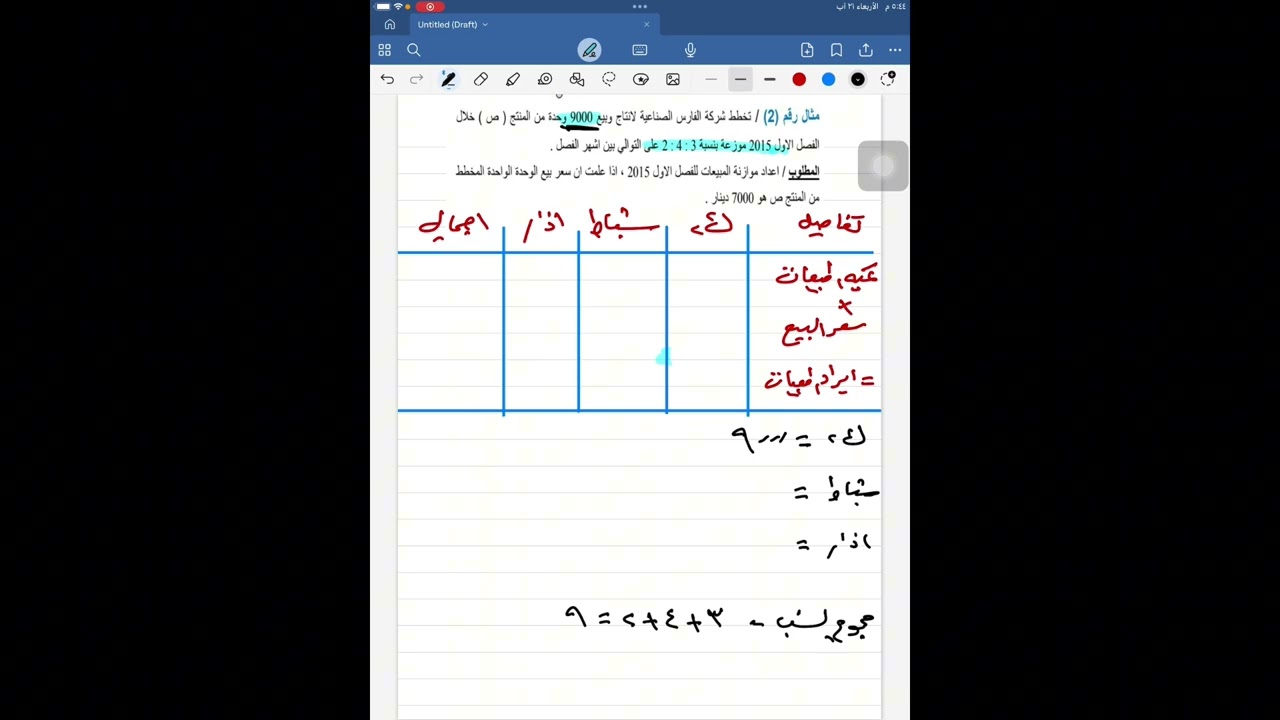 ٥:٤٤ م الأربعاء ٢١ آب
Untitled (Draft)
مثال رقم (2) / تخطط شركة الفارس الصناعية لانتاج وبيع 9000 وحدة من المنتج ( ص ) خلال
الفصل الاول 2015 موزعة بنسبة 3 : 4 : 2 على التوالي بين اشهر الفصل .
المطلوب / اعداد موازنة المبيعات للفصل الاول 2015 ، اذا علمت ان سعر بيع الوحدة الواحدة المخطط
من المنتج ص هو 7000 دينار .
تفاصيل ك٢ شباط اذار اجمالي
كمية مبيعات
×
سعر البيع
= ايراد مبيعات
ك٢ = ٩٠٠٠
شباط =
اذار =
مجموع نسب = ٣ + ٤ + ٢ = ٩